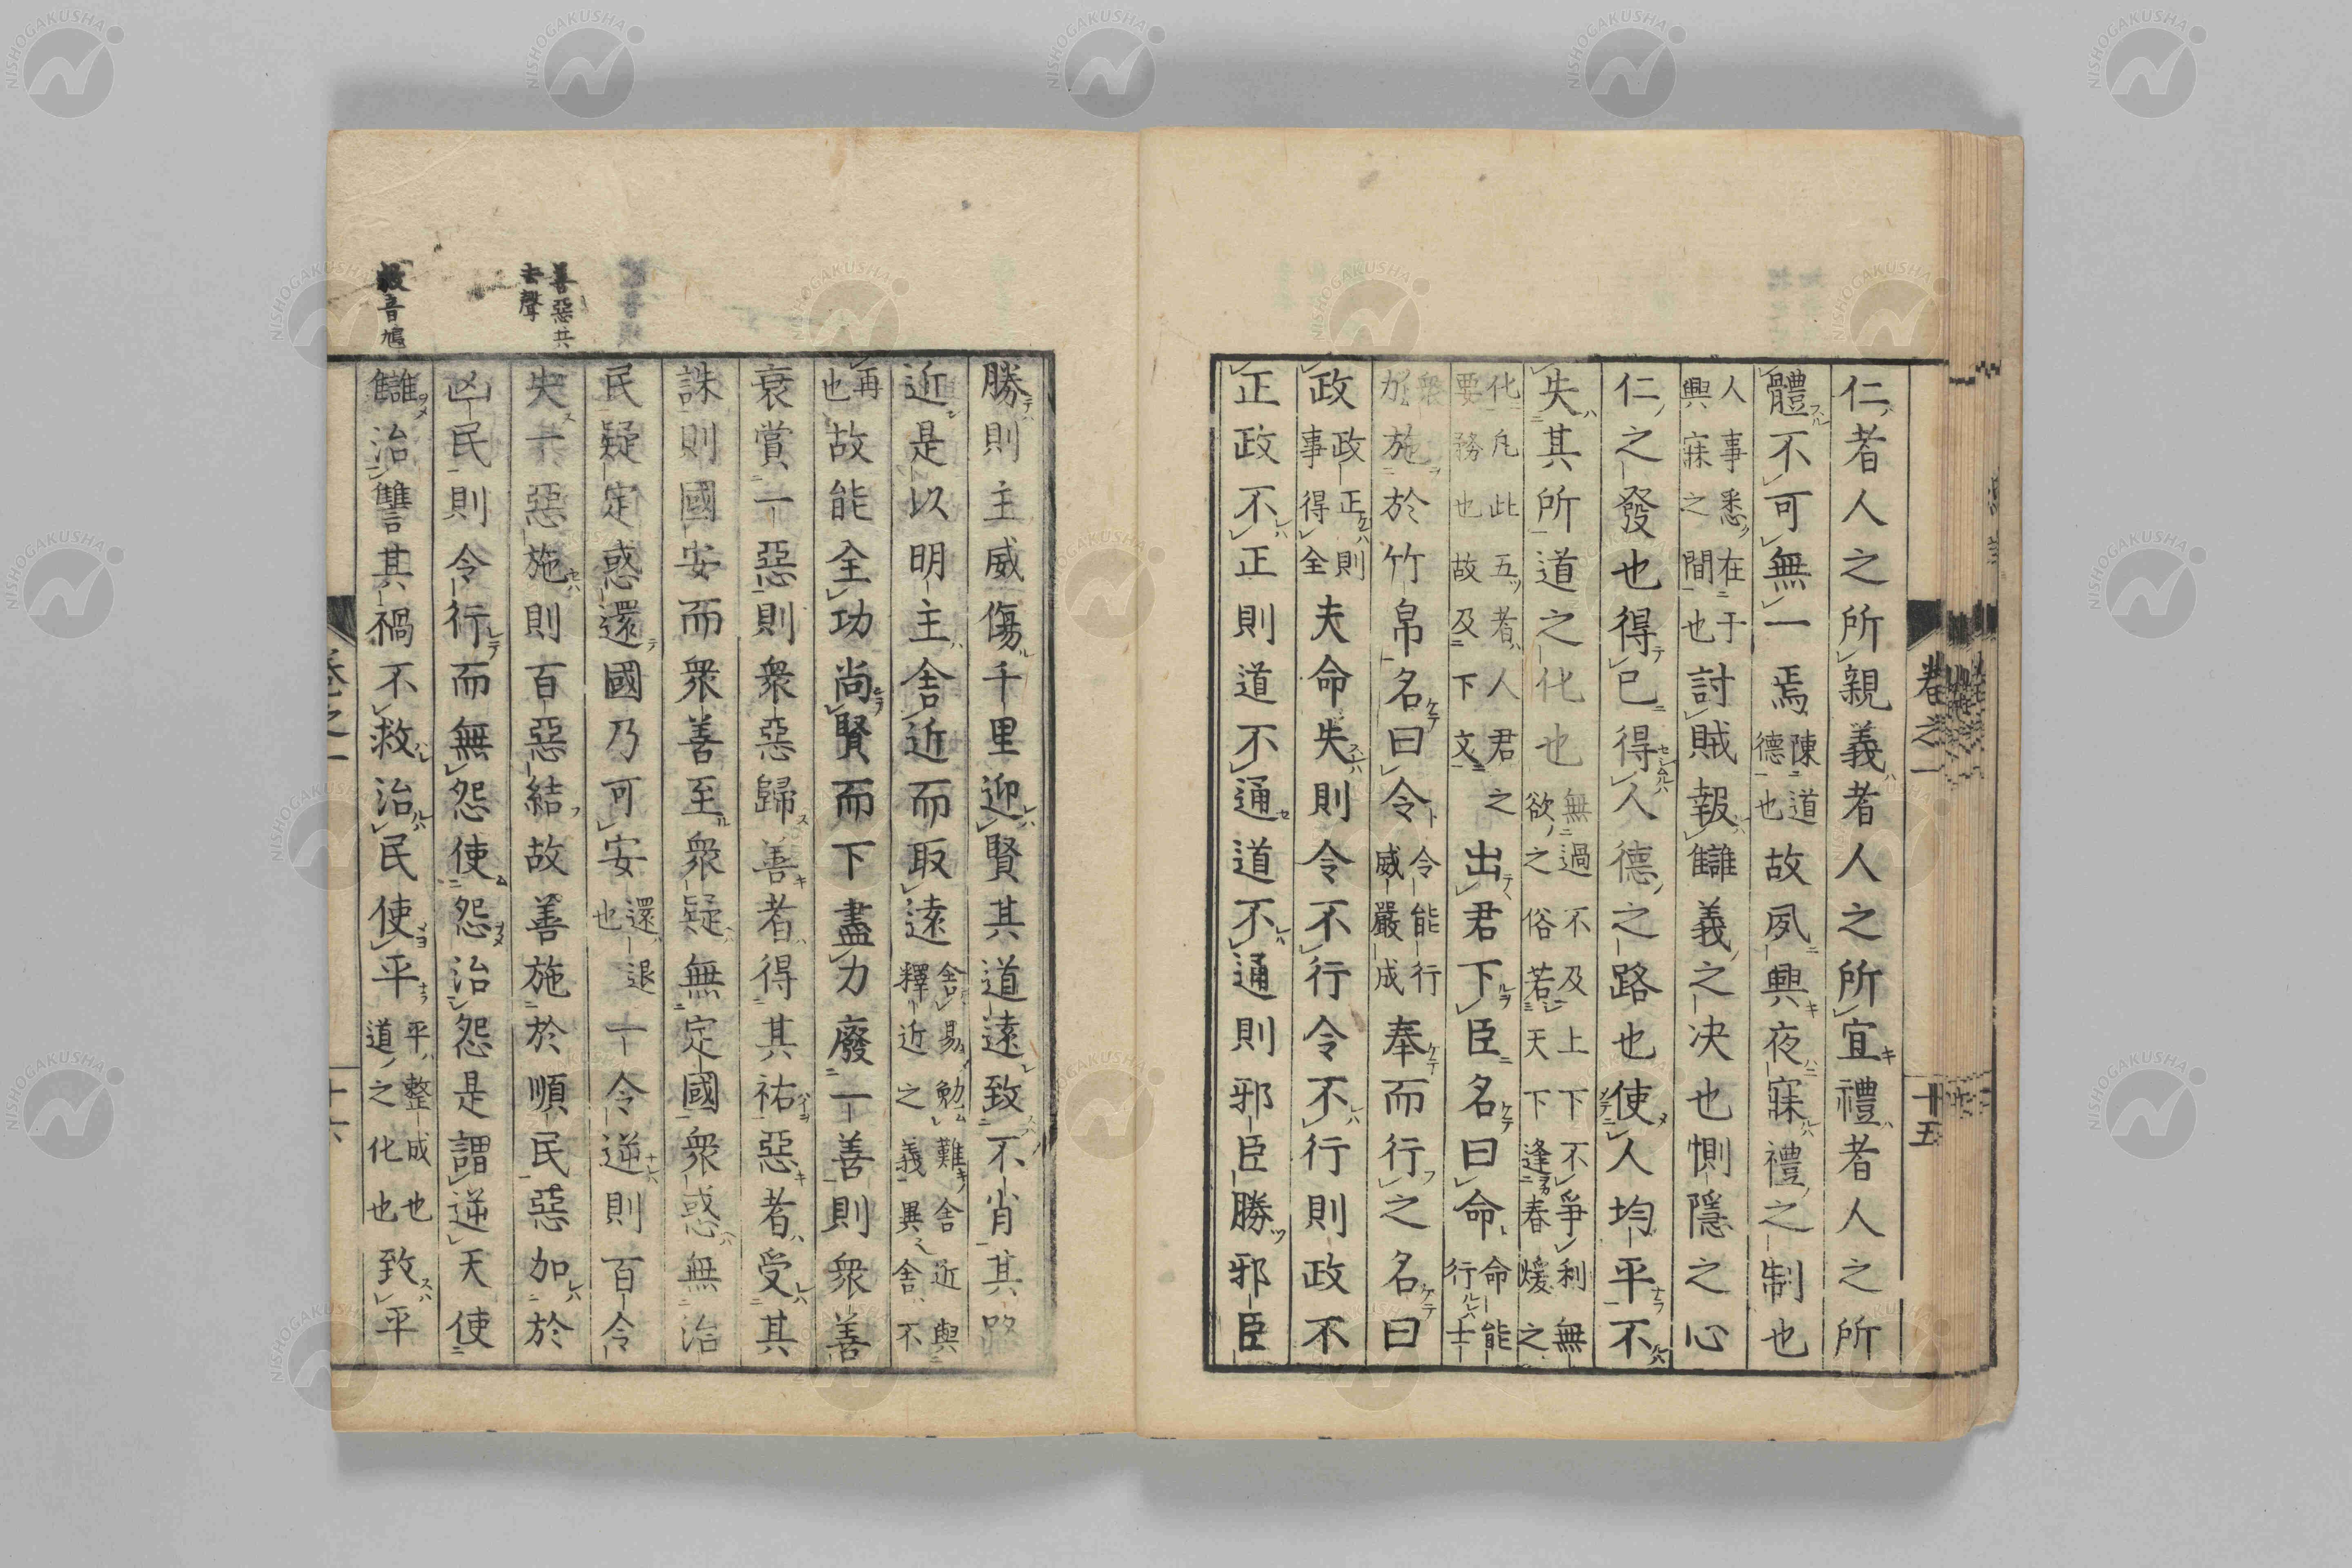 卷之一　十五
仁者人之所親義者人之所宜禮者人之所
體不可無一焉陳道德也故夙興夜寐禮之制也
人事悉在于興寐之間也討賊報讎義之决也惻隱之心
仁之發也得已得人德之路也使人均平不
失其所道之化也無過不及上下不爭利無欲之俗若天下逢春煖之
化凡此五者人君之要務也故及下文出君下臣名曰命命能行士
衆加施於竹帛名曰令令能行威嚴成奉而行之名曰
政政正則事得全夫命失則令不行令不行則政不
正政不正則道不通道不通則邪臣勝邪臣
勝則主威傷千里迎賢其道遠致不肖其路
近是以明主舍近而取遠舍易勉難舍近與釋近之義異舍不
再也故能全功尚賢而下盡力廢一善則衆善
衰賞一惡則衆惡歸善者得其祐惡者受其
誅則國安而衆善至衆疑無定國衆惑無治
民疑定惑還國乃可安還退也一令逆則百令
善惡共
去聲
失一惡施則百惡結故善施於順民惡加於
凶民則令行而無怨使怨治怨是謂逆天使
救音鳩
讎治讐其禍不救治民使平平整成也道之化也致平
卷之一　十六